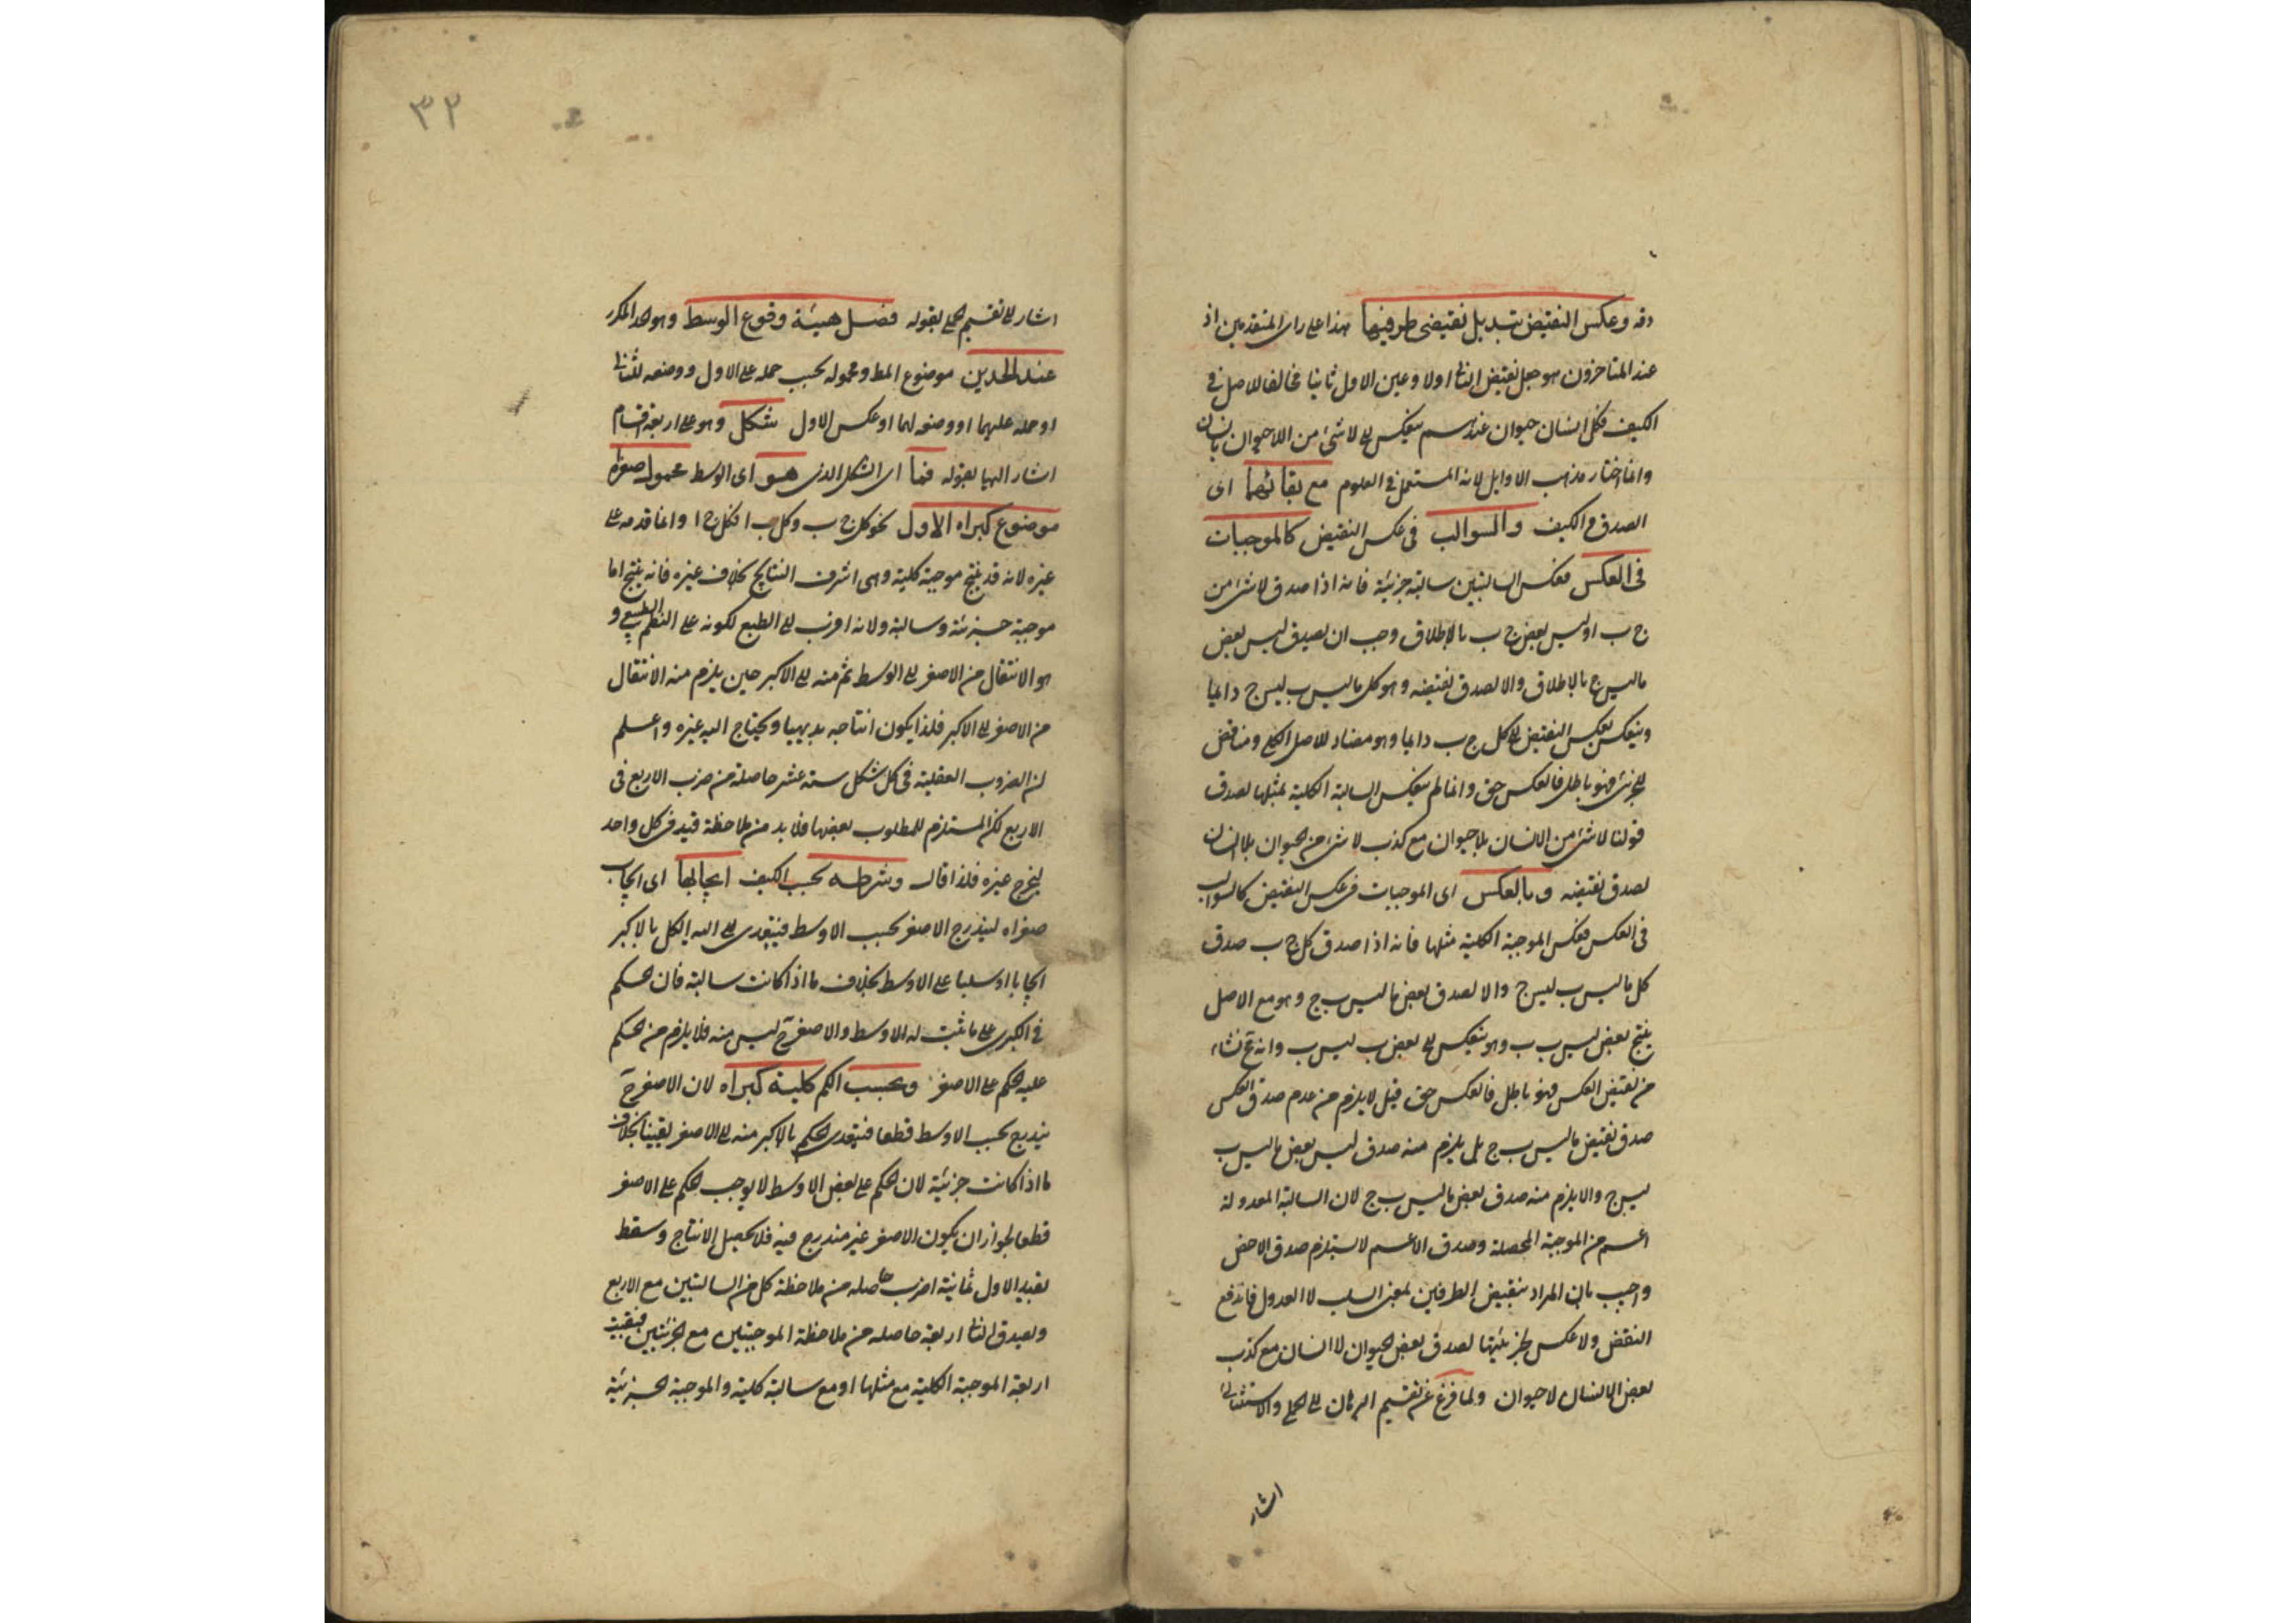 دقه وعكس النقيض تبديل نقيضى طرفيها هذا على راى المتقدمين اذ
عند المتاخرون هو جعل نقيض الثانى اولا وعين الاول ثانيا مخالفا للاصل فى
الكيف فكل انسان حيوان عندهم ينعكس الى لا شئ من اللاحيوان بانسان
وانما اختار مذهب الاوايل لانه المستعمل فى العلوم مع بقائهما اى
الصدق والكيف والسوالب فى عكس النقيض كالموجبات
فى العكس فعكس السالبتين سالبة جزئية فانه اذا صدق لا شئ من
ج ب او ليس بعض ج ب بالاطلاق وجب ان يصدق ليس بعض
ما ليس ج بالاطلاق والا لصدق نقيضه وهو كل ما ليس ب ليس ج دايما
وينعكس بعكس النقيض الى كل ج ب دايما وهو مضاد للاصل الكلى ومناقض
للجزئى فهو باطل فالعكس حق وانما لم ينعكس السالبة الكلية بمثلها لصدق
قولنا لا شئ من الانسان بلاحيوان مع كذب لا شئ من الحيوان بلا انسان
لصدق نقيضه وبالعكس اى الموجبات فى عكس النقيض كالسوالب
فى العكس فعكس الموجبة الكلية مثلها فانه اذا صدق كل ج ب صدق
كل ما ليس ب ليس ج والا لصدق بعض ما ليس ب ج وهو مع الاصل
ينتج بعض ليس ب ب وهو ينعكس الى بعض ب ليس ب وانه مح نشاء
من نقيض العكس فهو باطل فالعكس حق قيل لا يلزم من عدم صدق العكس
صدق نقيض ما ليس ب ج بل يلزم منه صدق ليس بعض ما ليس ب
ليس ج والا يلزم منه صدق بعض ما ليس ب ج لان السالبة المعدولة
اعم من الموجبة المحصلة وصدق الاعم لا يستلزم صدق الاخص
واجيب بان المراد بنقيض الطرفين بمعنى السلب لا العدول فاندفع
النقض ولا عكس لجزئيتها لصدق بعض الحيوان لا انسان مع كذب
بعض الانسان لا حيوان ولما فرغ عن تقسيم البرهان الى الحملى والاستثنائى
اشار
٣٢
اشار الى تقسيم الحملى بقوله فصل هيئة وقوع الوسط وهو الحد المكرر
عند الحدين موضوع المط ومحموله بحسب حمله على الاول ووضعه للثانى
او حمله عليهما او وضعه لهما او عكس الاول شكل وهو على اربعة اقسام
اشار اليها بقوله فما اى الشكل الذى هو اى الوسط محمول صغراه
موضوع كبراه الاول نحو كل ج ب وكل ب ا فكل ج ا وانما قدمه على
غيره لانه قد ينتج موجبة كلية وهى اشرف النتايج بخلاف غيره فانه ينتج اما
موجبة جزئية وسالبة ولانه اقرب الى الطبع لكونه على النظم الطبيعى و
هو الانتقال من الاصغر الى الوسط ثم منه الى الاكبر حين يلزم منه الانتقال
من الاصغر الى الاكبر فلذا يكون انتاجه بديهيا ويحتاج اليه غيره واعلم
ان الضروب العقلية فى كل شكل ستة عشر حاصلة من ضرب الاربع فى
الاربع لكن المستلزم للمطلوب بعضها فلا بد من ملاحظة قيد فى كل واحد
ليخرج غيره فلذا قال وشرطه بحسب الكيف ايجابها اى ايجاب
صغراه ليندرج الاصغر بحسب الاوسط فيتعدى الى الحكم بالاكبر
ايجابا او سلبا على الاوسط بخلاف ما اذا كانت سالبة فان الحكم
فى الكبرى على ما ثبت له الاوسط والاصغر ح ليس منه فلا يلزم من الحكم
عليه الحكم على الاصغر وبحسب الكم كلية كبراه لان الاصغر ح
يندرج بحسب الاوسط قطعا فيتعدى الحكم بالاكبر منه الى الاصغر يقينا بخلاف
ما اذا كانت جزئية لان الحكم على بعض الاوسط لا يوجب الحكم على الاصغر
قطعا لجواز ان يكون الاصغر غير مندرج فيه فلا يحصل الانتاج وسقط
بقيد الاول ثمانية اضرب حاصله من ملاحظة كل من السالبتين مع الاربع
وبصدق الثانى اربعة حاصله من ملاحظة الموجبتين مع الجزئيتين فبقيت
اربعة الموجبة الكلية مع مثلها او مع سالبة كلية والموجبة الجزئية